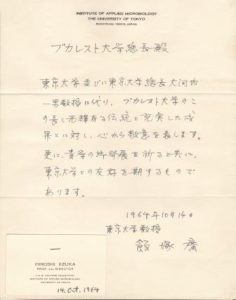 INSTITUTE OF APPLIED MICROBIOLOGY
THE UNIVERSITY OF TOKYO
ブカレスト大学総長殿
東京大学並びに東京大学総長 大河内
一男教授に代り、ブカレスト大学のこ
の長く光輝ある伝統と充実した成
果とに対し、心から敬意を表します。
更に、貴学の御発展を祈ると共に、
東京大学との友好を期するもので
あります。
1964年10月14日
東京大学教授
飯塚廣
HIROSHI IIZUKA
14. Oct. 1964